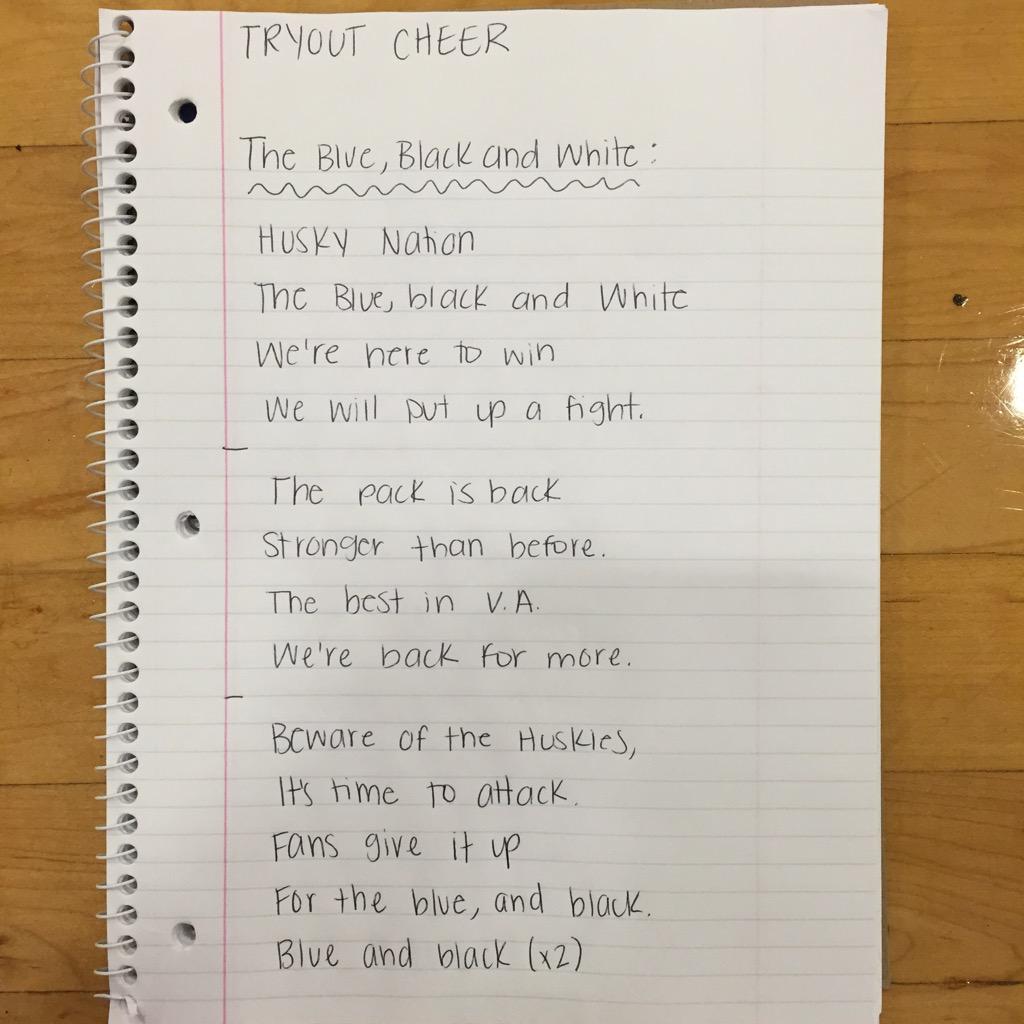 TRYOUT CHEER
The Blue, Black and White:
Husky Nation
The Blue, black and White
We're here to win
We will put up a fight.
The pack is back
Stronger than before.
The best in V.A.
We're back for more.
Beware of the Huskies,
It's time to attack.
Fans give it up
For the blue, and black.
Blue and black (x2)